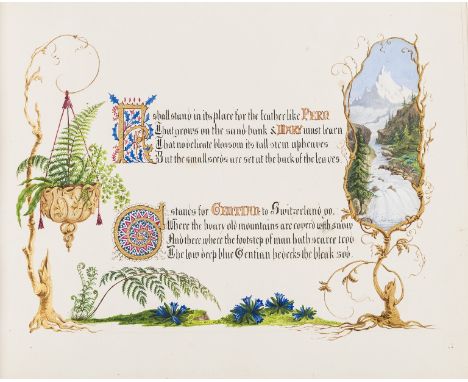 F shall stand in its place for the feather like FERN
That grows on the sand bank & MARY must learn
That no delicate blossom its tall stem upheaves
But the small seeds are set at the back of the leaves.
G stands for GENTIAN to Switzerland go,
Where the hoary old mountains are coverd with snow
And there where the footstep of man hath scarce trod
The low deep blue Gentian bedecks the bleak sod